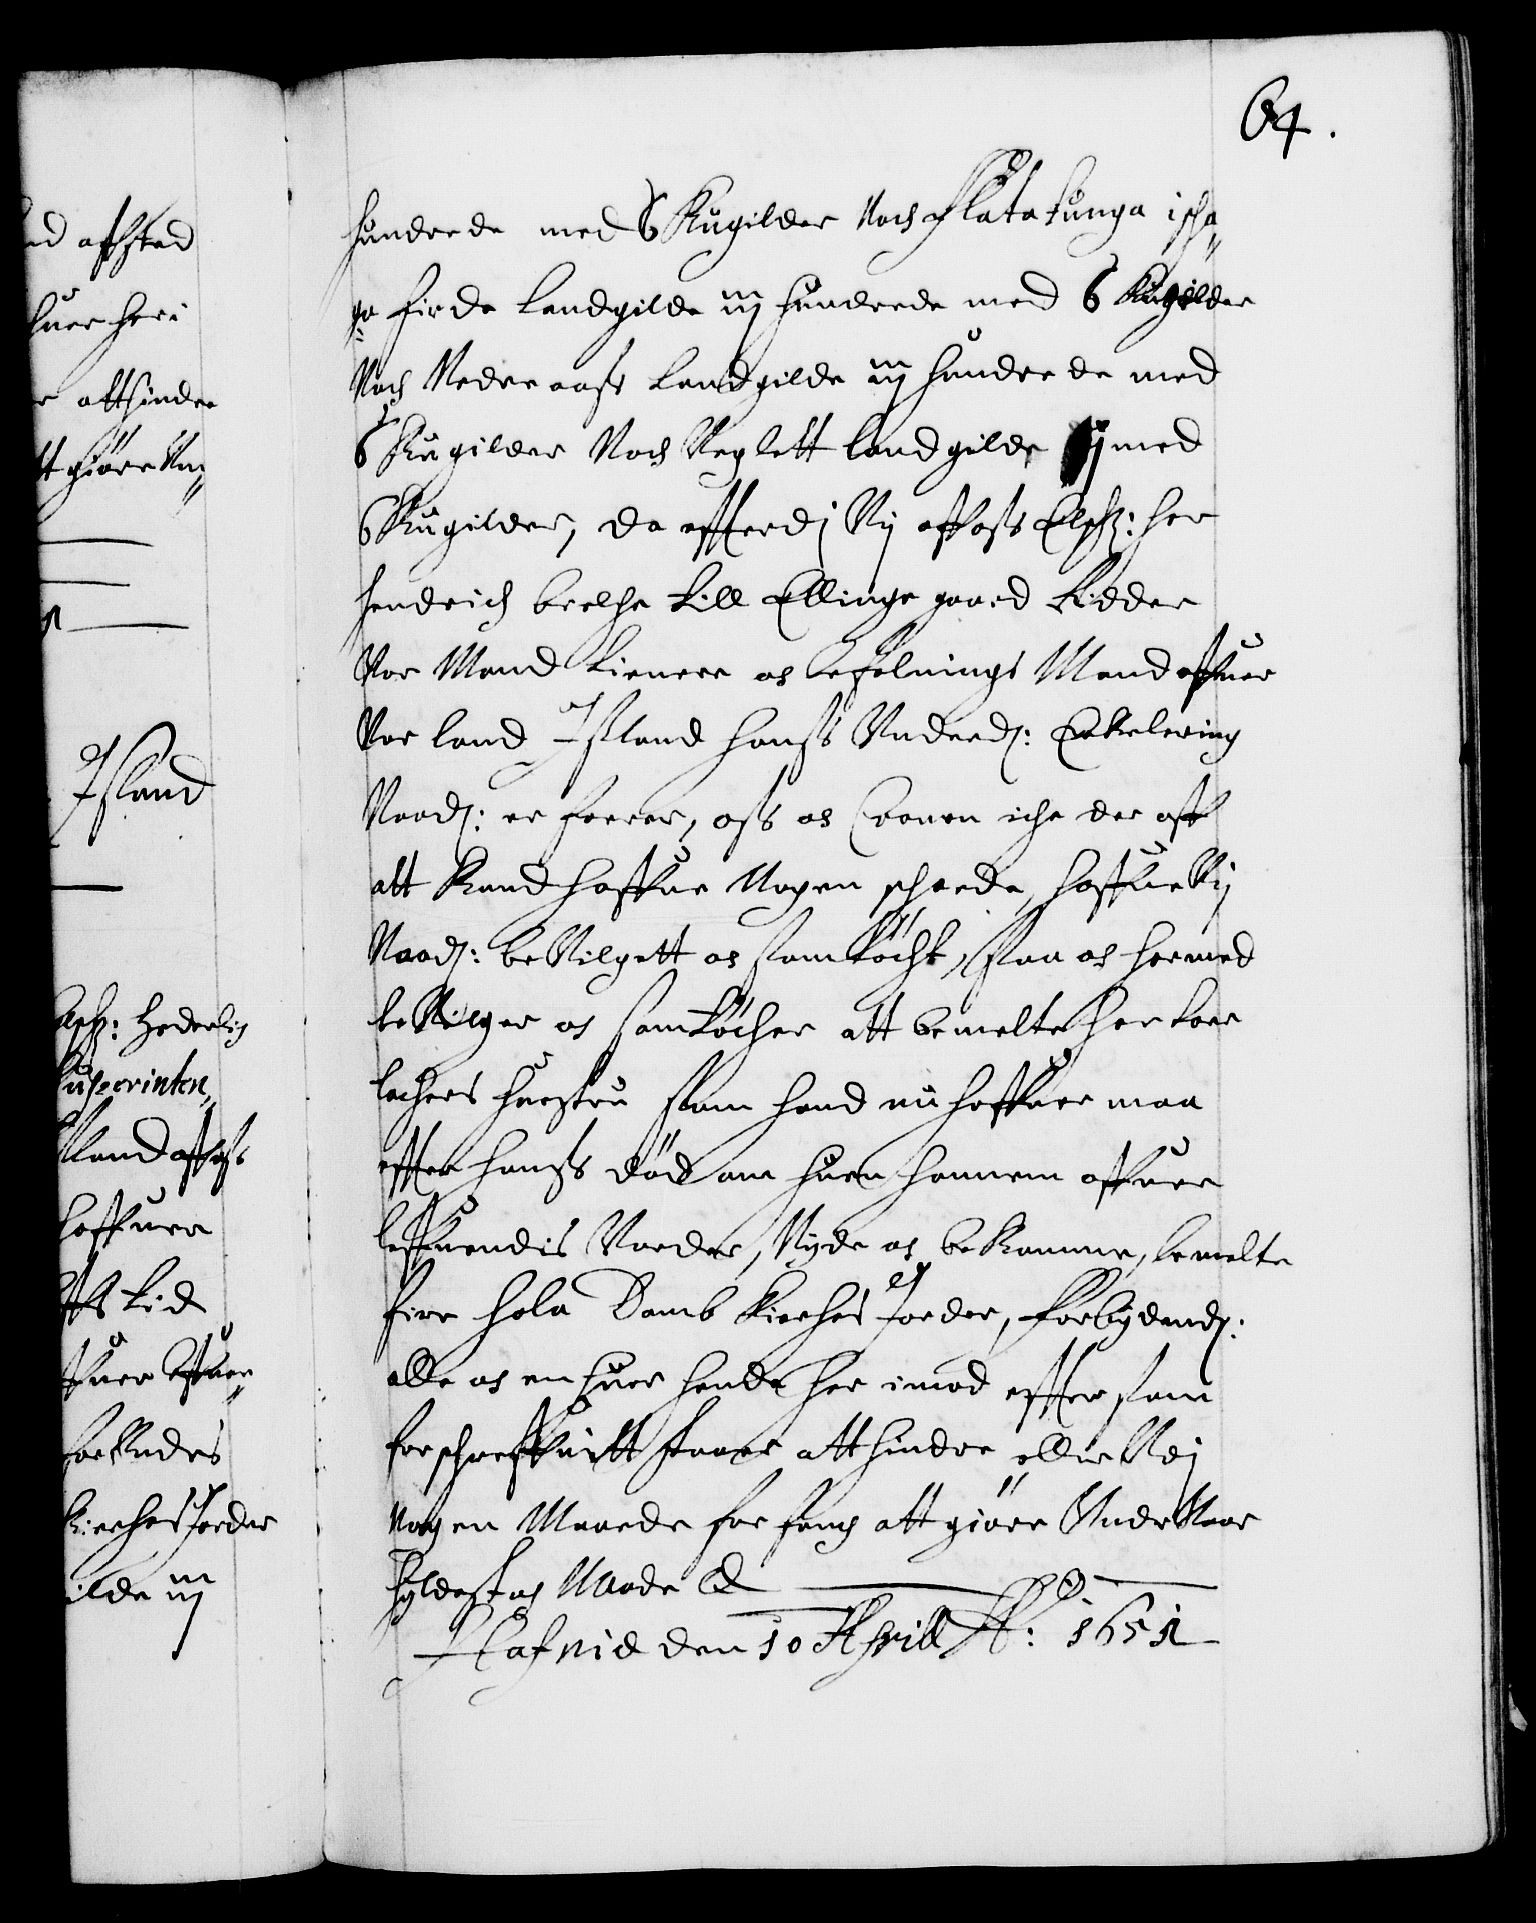 64.
hundrede med 6 Kugilder Noch Flata tunga i scha„
ga firde Landgilde iij hundrede med 6 Kugilder
Noch Nedre aass Landgilde iij hundrede med
6 Kugilder Noch Neglett Landgilde ij med
6 Kugilder, da efftterdj Vij aff oss Elsch: Her
Hendrich Bielche till Ellinge gaard Ridder
Vor Mand tienere och befalnings Mand offuer
Vort land Issland hanss Underd: Erklering
Naad: erfarer, oss och Cronen iche der aff
att kand haffue Nogen schaede, haffue Vij
Naad: beVilgett och samtöcht, saa och hermed
beVilger och samtöcher att bemelte Her Tor
lachers Hustru som hand nu haffuer maa
effter hanss död om hun hannem offuer
leffuendis Vorder, Nyde och bekomme, bemelte
fire Hola Domb Kirches Jorder, Forbydend:
alle och en huer hende her imod effter som
forschreffuitt staaer att hindre eller Vdj
Nogen Maade forfang att giöre Under Vor
Hyldest och Naade
Hafnie den 10 Aprill A.o: 1651
ed affsted
huer her i
e att hindre
tt giöre Un„
Issland
Elsch: Hederlig
Superinten„
Island aff oss
haffuer
tiid
Offuer
for Undes
Kirches Jorder
gilde iij